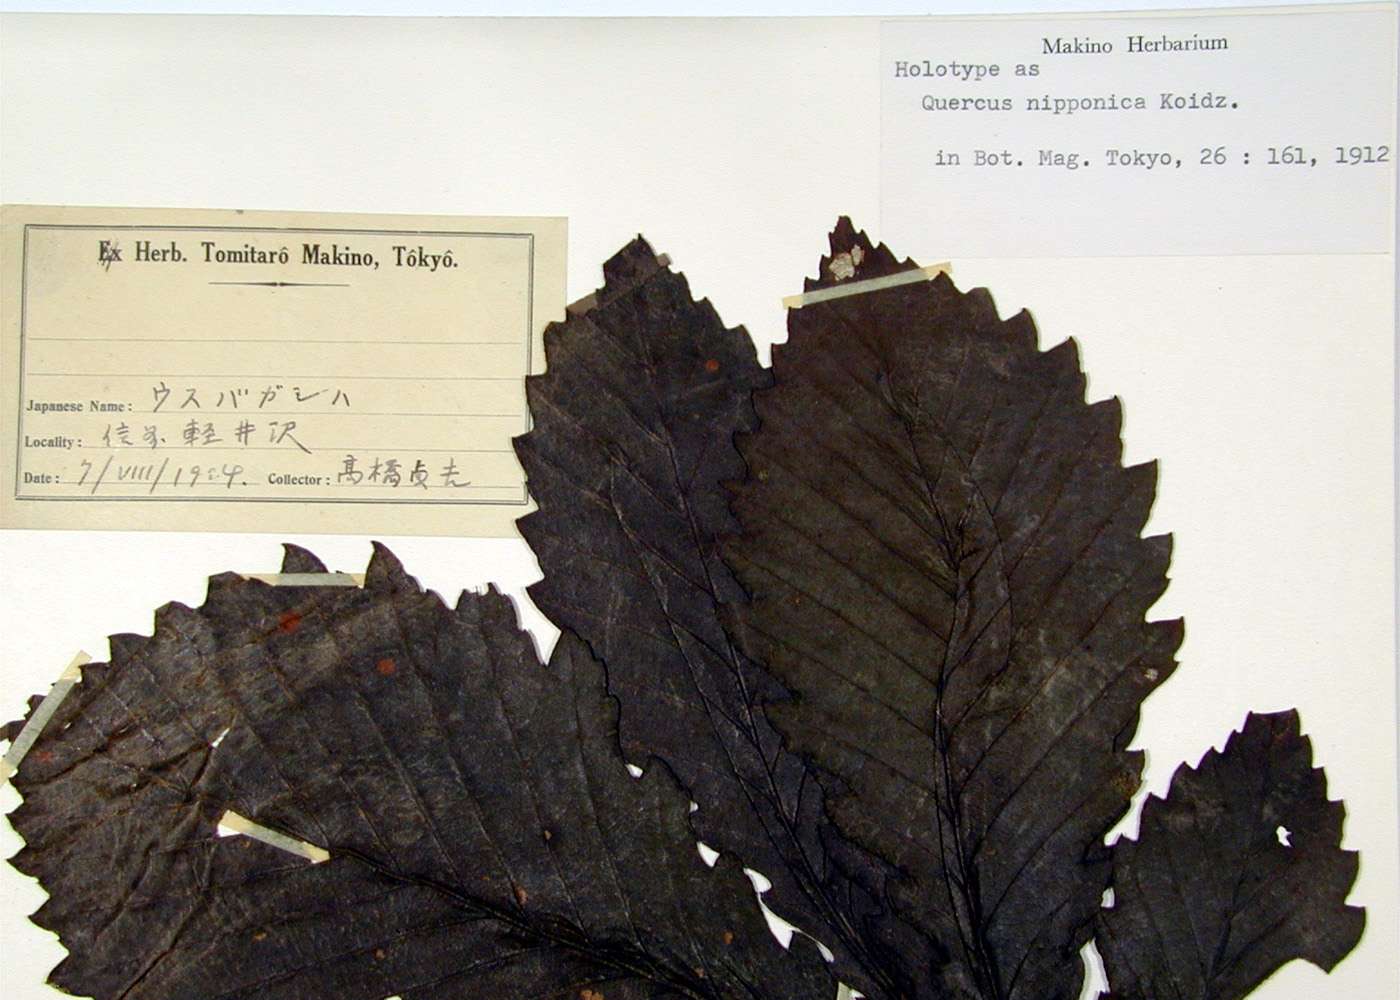 Makino Herbarium
Holotype as
Quercus nipponica Koidz.
in Bot. Mag. Tokyo, 26 : 161, 1912
Ex Herb. Tomitarô Makino, Tôkyô.
Japanese Name: ウスバガシハ
Locality: 信州軽井沢
Date: 7/VIII/19 Collector: 高橋貞吉